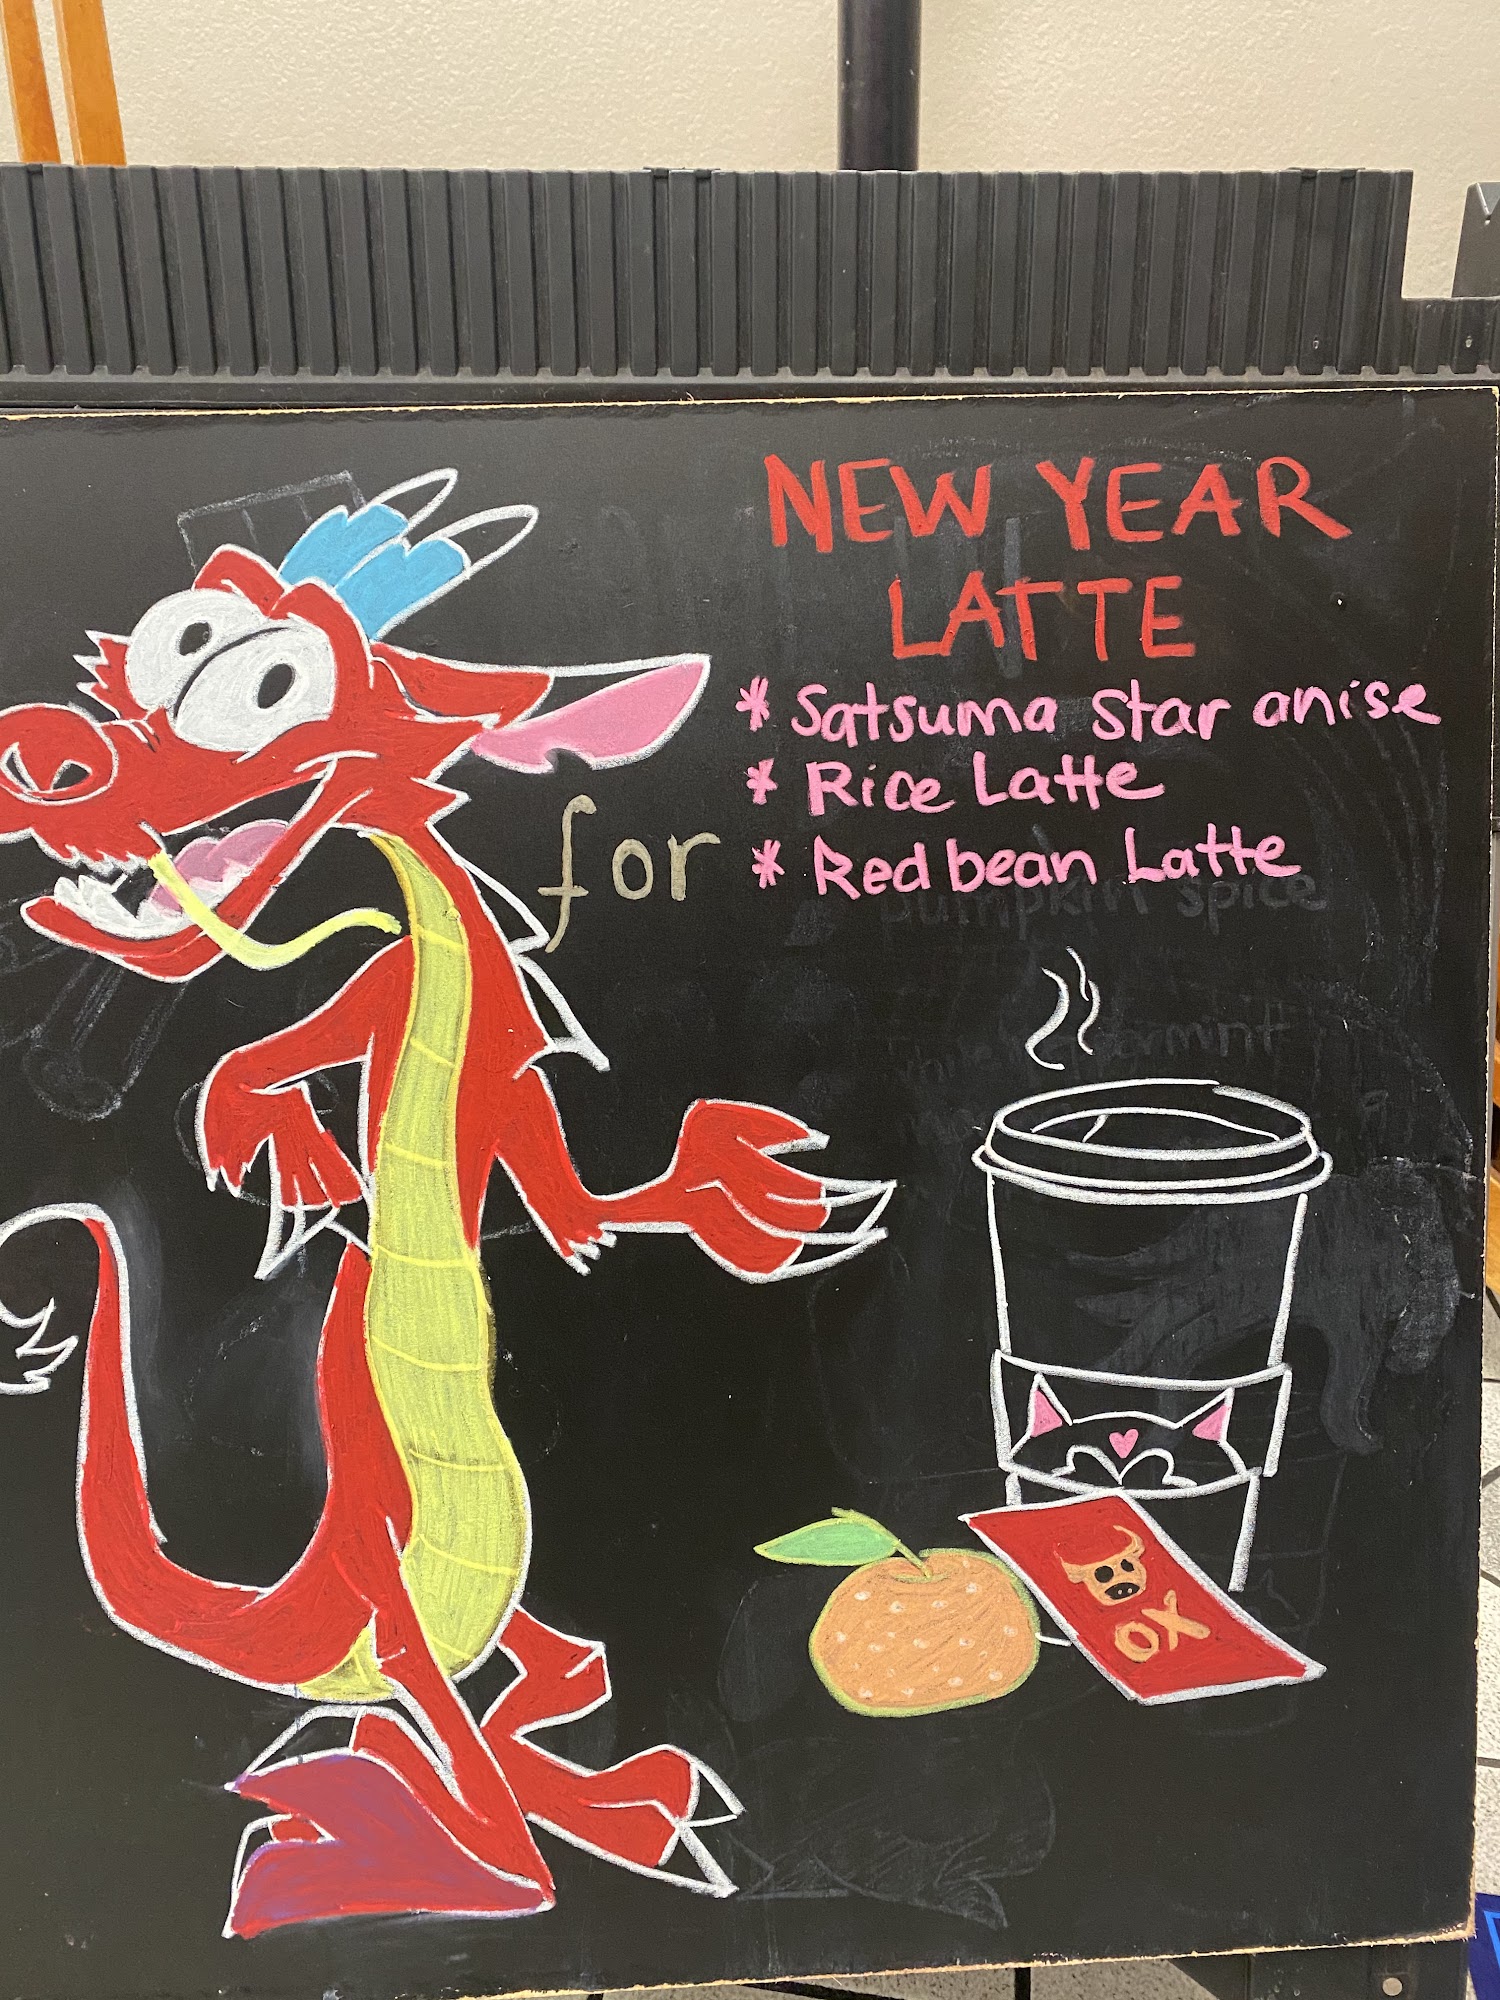 NEW YEAR
LATTE
* Satsuma star anise
* Rice Latte
for
* Red bean Latte
pumpkin spice
OX